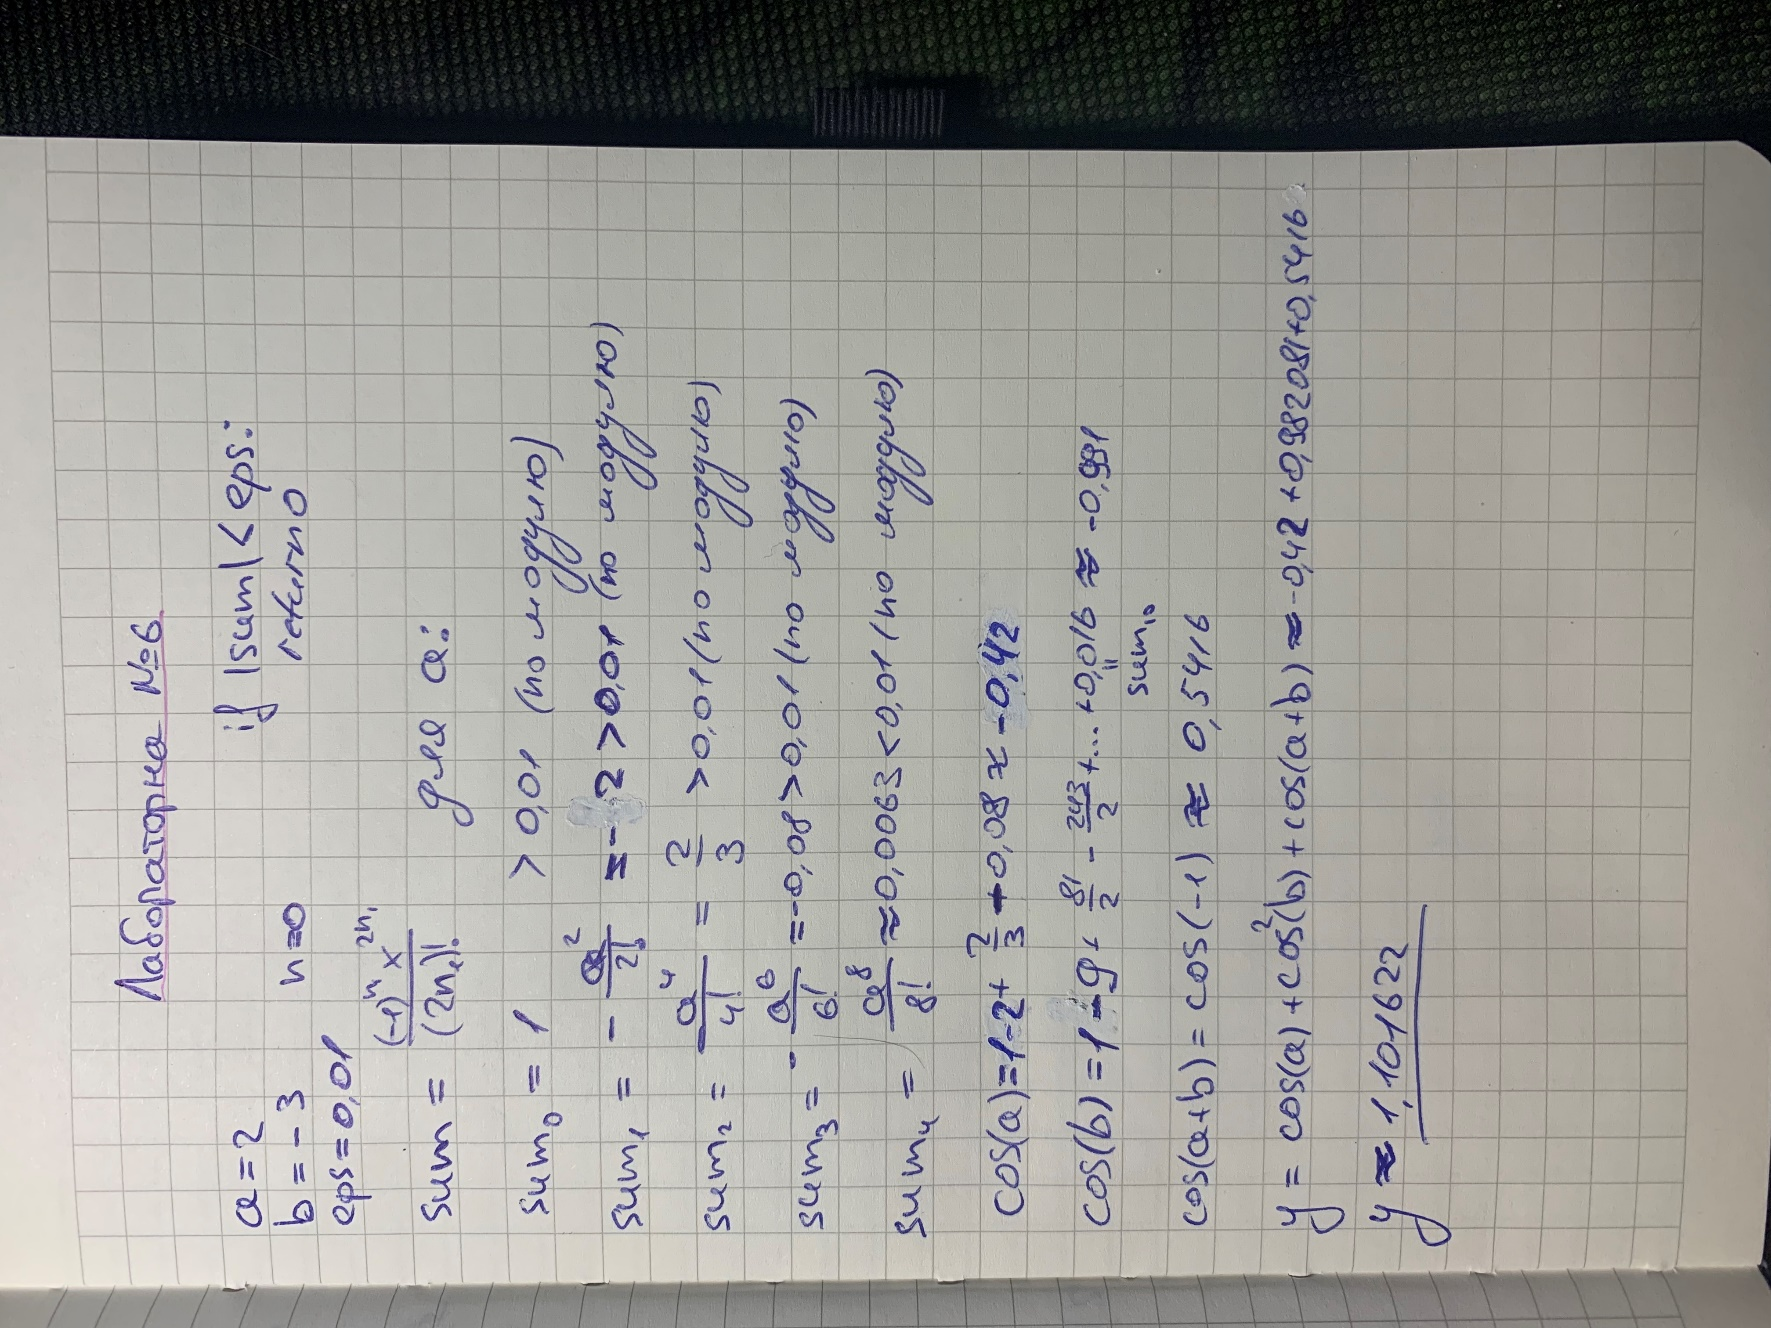 Лабораторна №6
a=2
b=-3 n=0 if |sum|<eps:
eps=0,01 return 0
sum = (-1)ⁿ x²ⁿ / (2n)! для a:
sum₀ = 1 >0,01 (по модулю)
sum₁ = - a²/2! = -2 >0,01 (по модулю)
sum₂ = a⁴/4! = 2/3 >0,01 (по модулю)
sum₃ = - a⁶/6! =-0,08>0,01 (по модулю)
sum₄ = a⁸/8! ≈0,0063<0,01 (по модулю)
cos(a)=1-2+2/3+0,08≈-0,42
cos(b)=1-9+81/2-243/2+...+0,016≈-0,991
sum₁₀
cos(a+b)=cos(-1)≈0,5416
y = cos(a)+cos²(b)+cos(a+b)≈-0,42+0,982081+0,5416
y≈1,101622